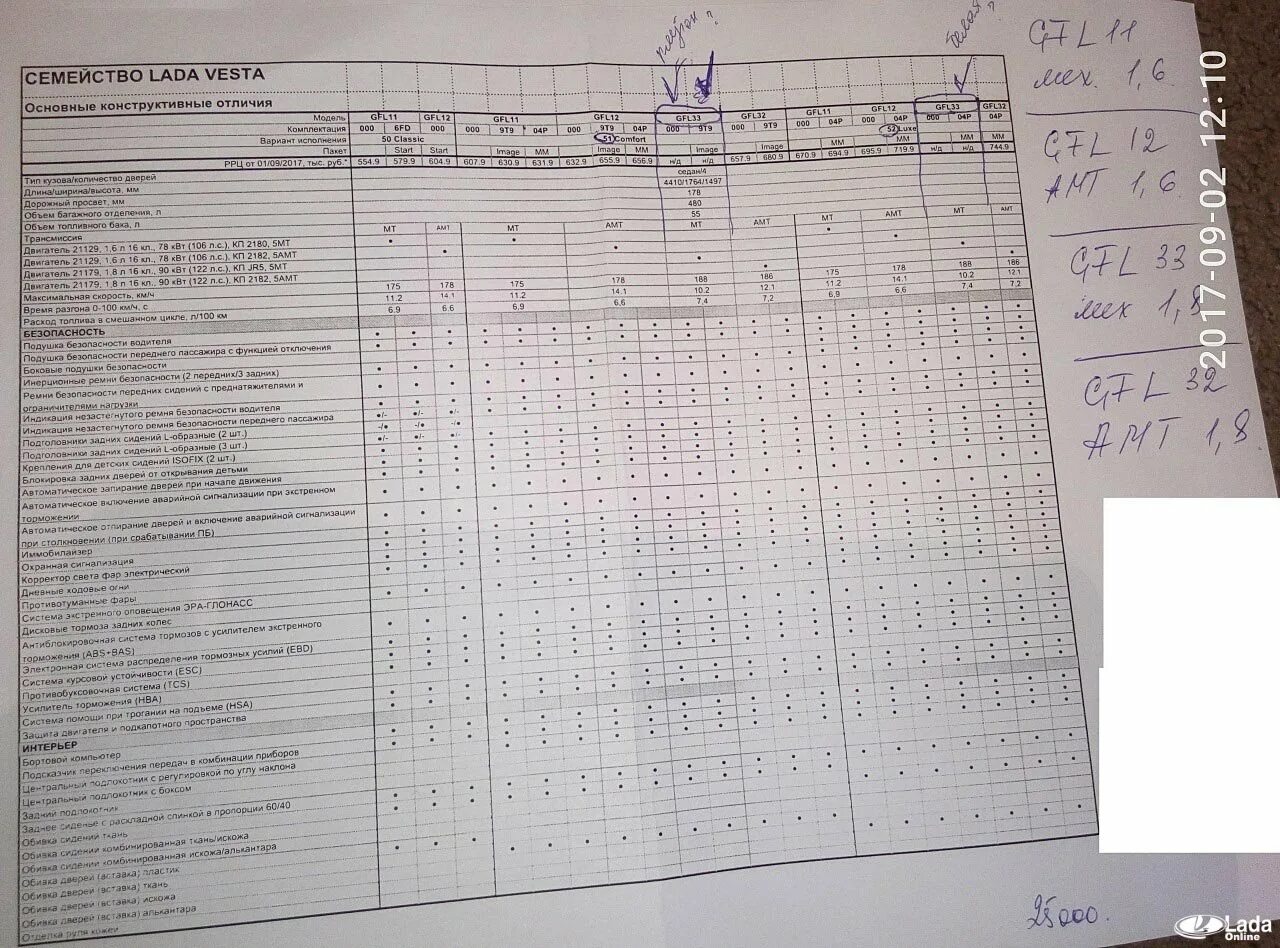 СЕМЕЙСТВО LADA VESTA
Основные конструктивные отличия
Модель GFL11 GFL12 GFL11 GFL12 GFL33 GFL32 GFL11 GFL12 GFL33 GFL32
Комплектация 000 6FD 000 000 9T9 04P 000 9T9 04P 000 9T9 000 9T9 000 04P 000 04P 000 04P 04P
Вариант исполнения 50 Classic 51 Comfort 52 Luxe
Пакет Start Start Image MM Image MM Image Image MM MM MM MM
РРЦ от 01/09/2017, тыс. руб.* 554.9 579.9 604.9 607.9 630.9 631.9 632.9 655.9 656.9 н/д н/д 657.9 680.9 670.9 694.9 695.9 719.9 н/д н/д 744.9
Тип кузова/количество дверей седан/4
Длина/ширина/высота, мм 4410/1764/1497
Дорожный просвет, мм 178
Объем багажного отделения, л 480
Объем топливного бака, л 55
Трансмиссия МТ АМТ МТ АМТ МТ АМТ МТ АМТ МТ АМТ
Двигатель 21129, 1,6 л 16 кл., 78 кВт (106 л.с.), КП 2180, 5МТ
Двигатель 21129, 1,6 л 16 кл., 78 кВт (106 л.с.), КП 2182, 5АМТ
Двигатель 21179, 1,8 л 16 кл., 90 кВт (122 л.с.), КП JR5, 5МТ
Двигатель 21179, 1,8 л 16 кл., 90 кВт (122 л.с.), КП 2182, 5АМТ
Максимальная скорость, км/ч 175 178 175 178 188 186 175 178 188 186
Время разгона 0-100 км/ч, с 11.2 14.1 11.2 14.1 10.2 12.1 11.2 14.1 10.2 12.1
Расход топлива в смешанном цикле, л/100 км 6.9 6.6 6.9 6.6 7,4 7,2 6.9 6.6 7,4 7,2
БЕЗОПАСНОСТЬ
Подушка безопасности водителя
Подушка безопасности переднего пассажира с функцией отключения
Боковые подушки безопасности
Инерционные ремни безопасности (2 передних/3 задних)
Ремни безопасности передних сидений с преднатяжителями и
ограничителями нагрузки
Индикация незастегнутого ремня безопасности водителя
Индикация незастегнутого ремня безопасности переднего пассажира
Подголовники задних сидений L-образные (2 шт.)
Подголовники задних сидений L-образные (3 шт.)
Крепления для детских сидений ISOFIX (2 шт.)
Блокировка задних дверей от открывания детьми
Автоматическое запирание дверей при начале движения
Автоматическое включение аварийной сигнализации при экстренном
торможении
Автоматическое отпирание дверей и включение аварийной сигнализации
при столкновении (при срабатывании ПБ)
Иммобилайзер
Охранная сигнализация
Корректор света фар электрический
Дневные ходовые огни
Противотуманные фары
Система экстренного оповещения ЭРА-ГЛОНАСС
Дисковые тормоза задних колес
Антиблокировочная система тормозов с усилителем экстренного
торможения (ABS+BAS)
Электронная система распределения тормозных усилий (EBD)
Система курсовой устойчивости (ESC)
Противобуксовочная система (TCS)
Усилитель торможения (HBA)
Система помощи при трогании на подъеме (HSA)
Защита двигателя и подкапотного пространства
ИНТЕРЬЕР
Бортовой компьютер
Подсказчик переключения передач в комбинации приборов
Центральный подлокотник с регулировкой по углу наклона
Центральный подлокотник с боксом
Задний подлокотник
Заднее сиденье с раскладной спинкой в пропорции 60/40
Обивка сидений ткань
Обивка сидений комбинированная ткань/искожа
Обивка сидений комбинированная искожа/алькантара
Обивка дверей (вставка) пластик
Обивка дверей (вставка) ткань
Обивка дверей (вставка) искожа
Обивка дверей (вставка) алькантара
Отделка руля кожей
GFL 11
мех. 1,6
GFL 12
АМТ 1,6
GFL 33
мех 1,8
GFL 32
АМТ 1,8
25000.
2017-09-02 12:10
Lada
Online